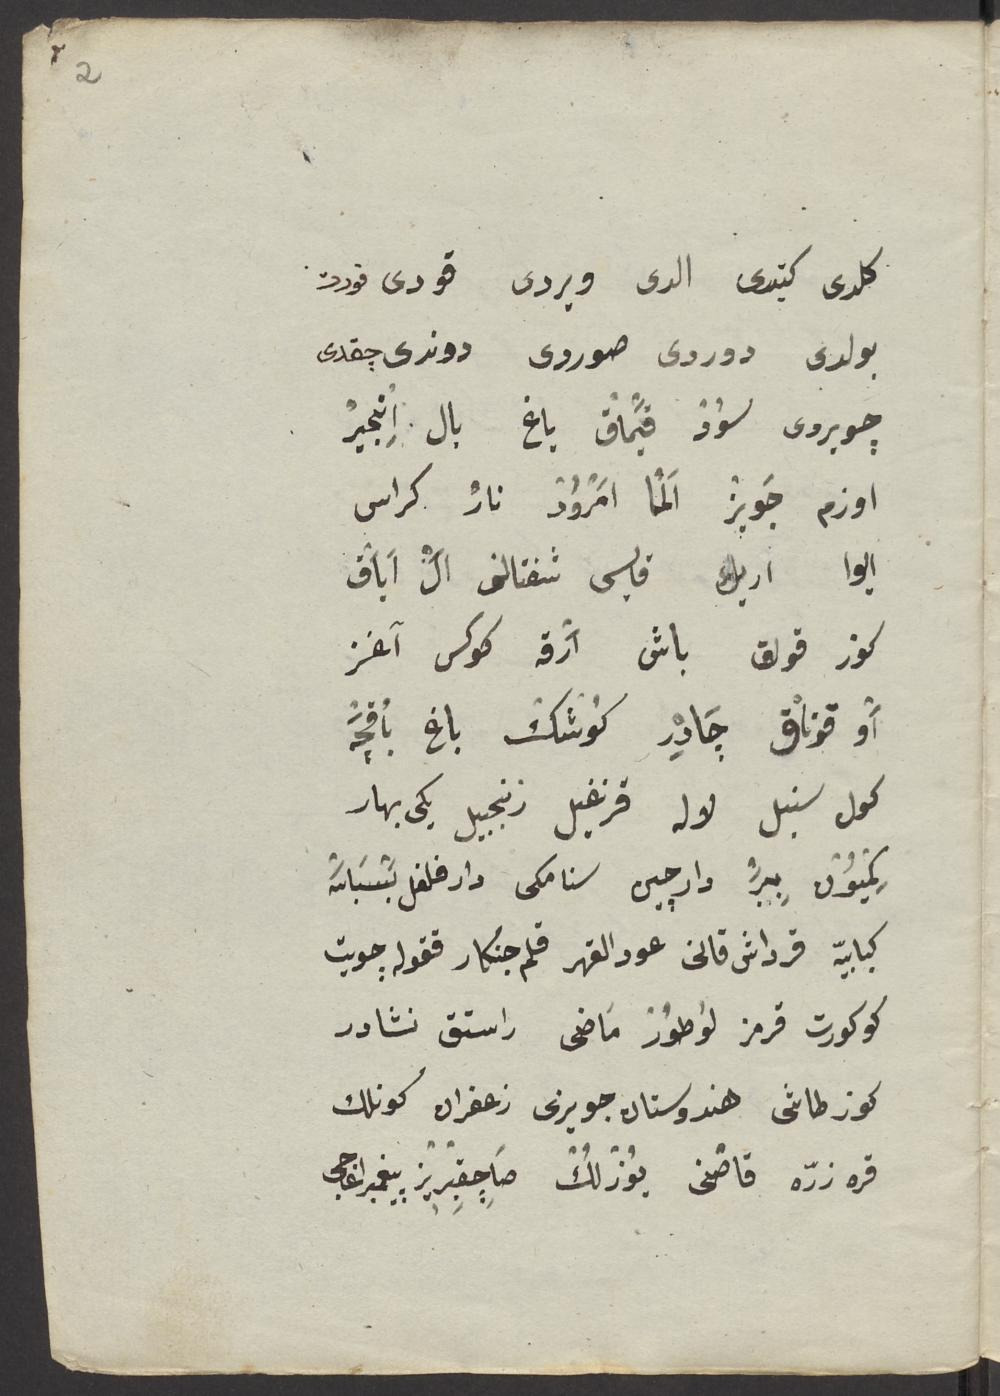 ٢
2
كلدى كتدى الدى ويردى قودى
بولدى دوردى صوردى دوندى چقدى
چويردى سُودْ قَيْمَاقْ ياغ بال اِنْجِيرْ
اوزم جَوِيزْ اَلْمَا اَمْرُودْ نارْ كراس
ايوا اريك قايسى شفتالى اَلْ اَيَاقْ
كوز قولاق باش اَرْقه كوكس آغز
اَوْ قوناق چَادِرْ كُوشْكْ باغ بَاقْچَه
كول سنبل لاله قرنفيل زنجبيل يكى بهار
كِمْيُونْ بِبَرْ دارچين سنامكى دارفلفل بَسْبَاسَه
كبابيّه قرداش قانى عود القهر قلم جنكار ققوله چويت
كوكورت قرمز لُوطُورْ مَاضى راستق نشادر
كوز طاشى هندوستان جويزى زعفران كونلك
قره زرّه قاصْنى يُوزْلُكْ صَاچِقِبْرِيزْ پيغمبر اغاجى